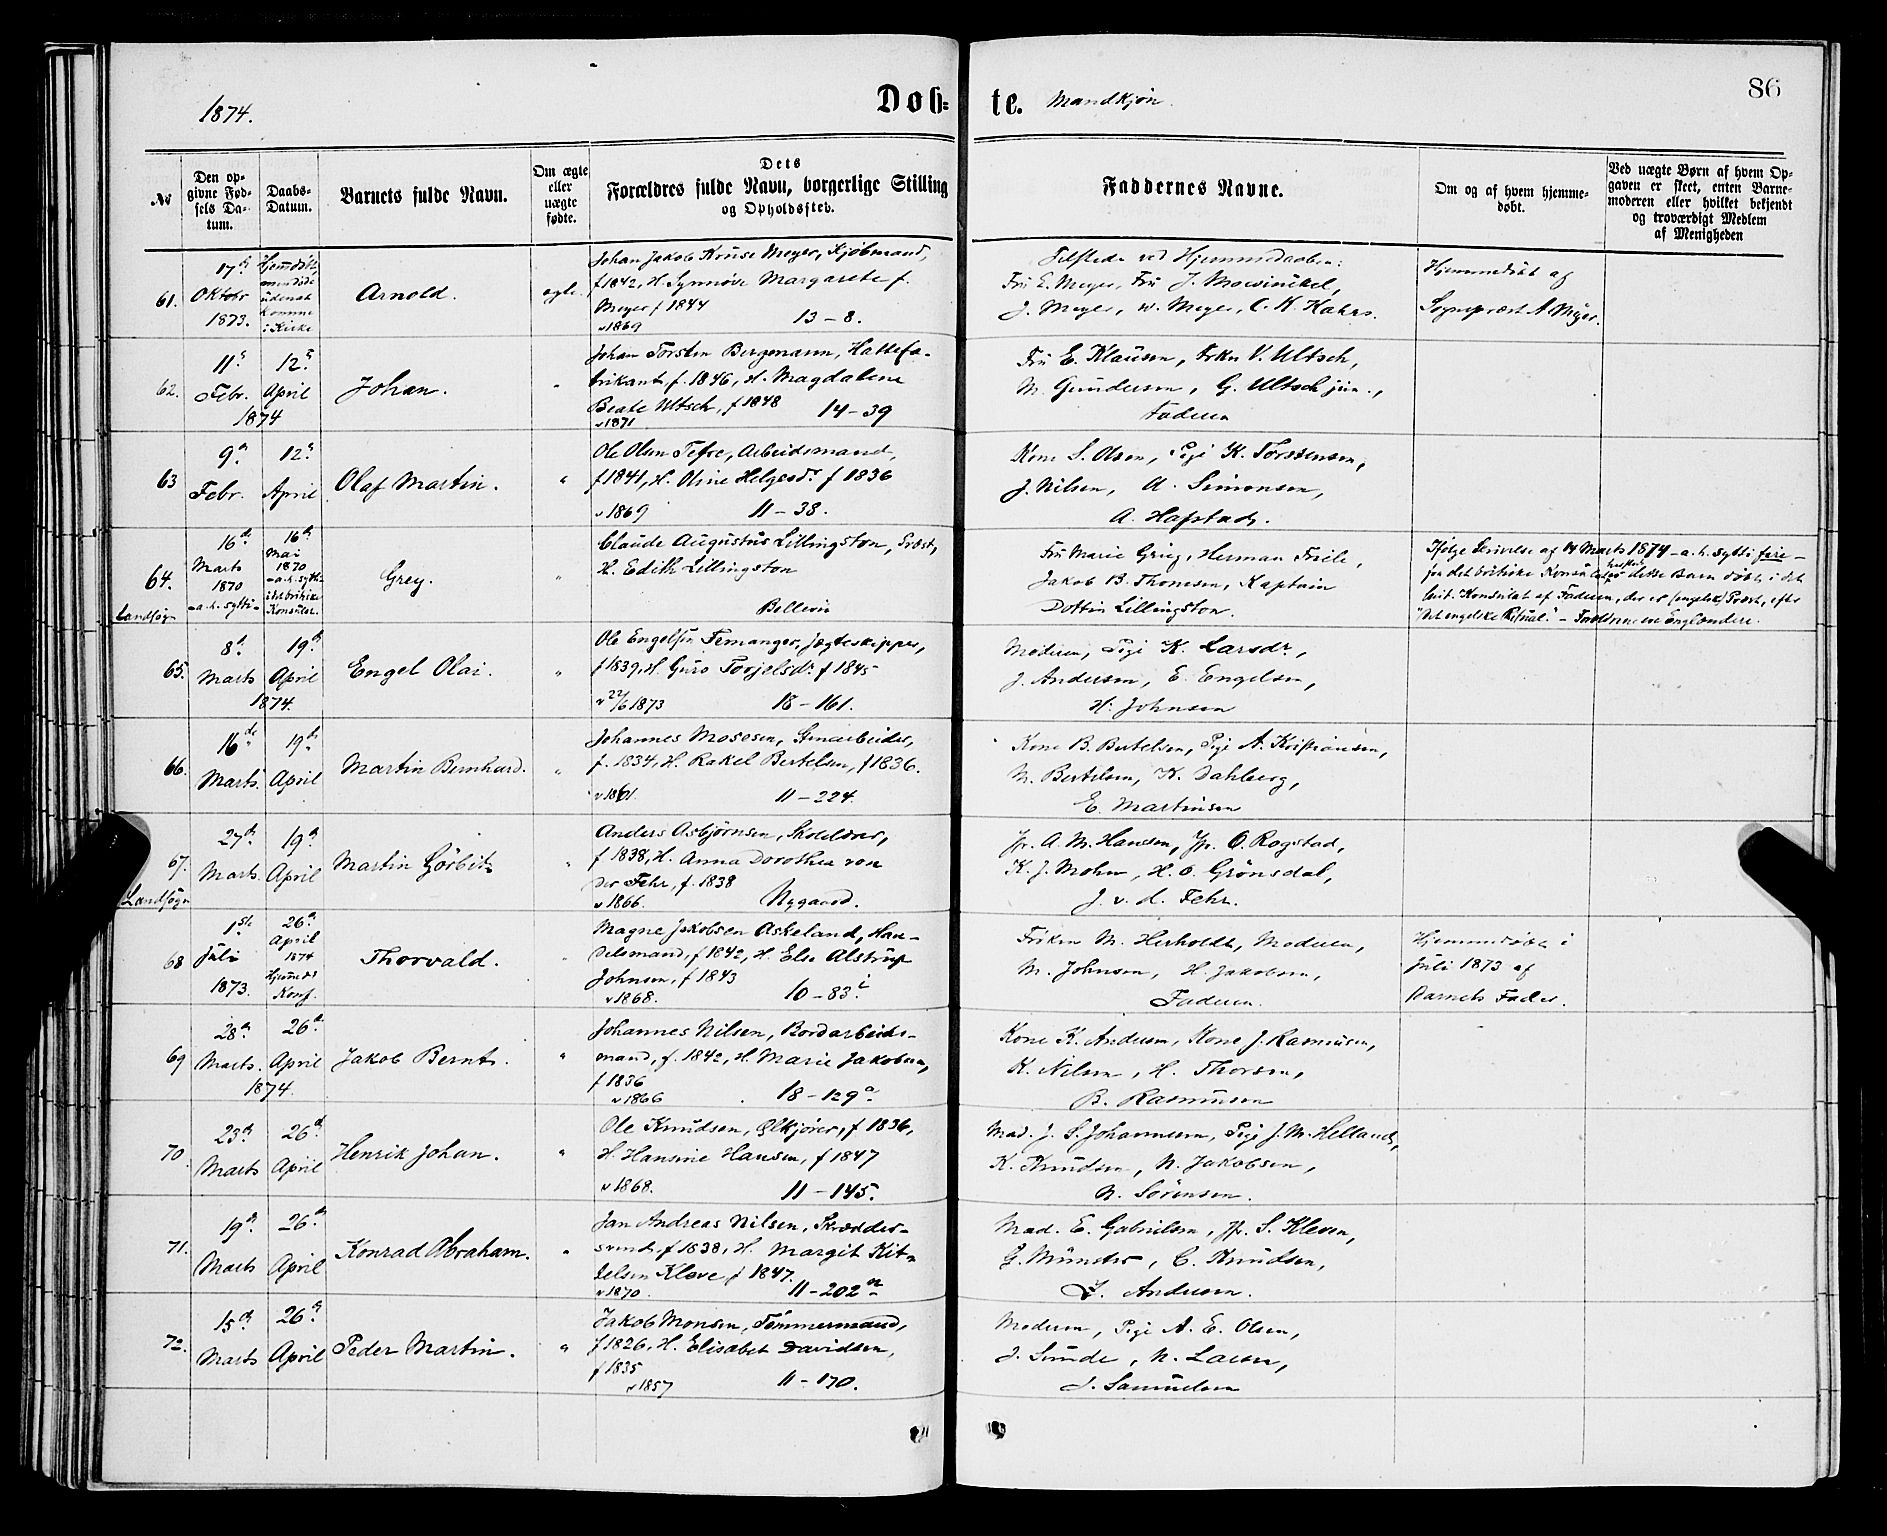 1874.
Døb-
te. Mandkjøn.
86
No
Den op-
givne Fød-
sels Da-
tum.
Daabs-
Datum.
Barnets fulde Navn.
Om ægte
eller
uægte
fødte.
Dets
Forældres fulde Navn, borgerlige Stilling
og Opholdssted.
Faddernes Navne.
Om og af hvem hjemme-
døbt.
Ved uægte Børn af hvem Op-
gaven er skeet, enten Barne-
moderen eller hvilket bekjendt
og troværdigt Medlem
af Menigheden
61.
17d
Oktobr
1873.
Hjemdøbt,
men døde
udenat
komme
i Kirke
Arnold.
ægte.
Johan Jakob Kruse Meyer, Kjøbmand,
f 1842, H. Synnøve Margarete f.
Meyer f 1844
v 1869 13-8.
Tilstede ved Hjemmedaaben:
Fru E. Meyer, Fru J. Mowinckel,
J. Meyer, W. Meyer, C. K. Kahrs.
Hjemmedøbt af
Sognepræst A. Meyer.
62.
11t
Febr.
12t
April
1874
Johan.
"
Johan Torsten Bergemann, Hattefa-
brikant f. 1846, H. Magdalene
Beate Ultsch, f 1848 14-39
v 1871
Fru E. Klausen, Frkn V. Ultsch,
M. Gundersen, G. Ultsch jun.,
Faderen
63
9d
Febr.
12t
April
Olaf Martin.
"
Ole Olsen Tefre, Arbeidsmand,
f 1841, H. Oline Helgesdr f 1836
v 1869 11-38.
Kone S. Olsen, Pige K. Torstensen,
J. Nilsen, A. Simonsen,
A. Hafstad.
64.
Landsogn
16d
Marts
1870
-a.h. sytti-
16d
Mai
1870
-a.h. sytti-
i det britiske
Konsulat.
Grey.
"
Claude Augustus Lillingston, Præst,
H. Edith Lillingston
Bellevue
Fru Marie Grieg, Herman Friele,
Jakob B. Thomsen, Kaptain
Dottin Lillingston.
Ifølge Skrivelse af 14 Marts 1874 -a.h. sytti fire-
fra det britiske Konsulat er dette Barn døbt i det
brit. Konsulat af Faderen, der er (engelsk) Præst, efter
"det engelske Ritual." - Forældrene ere Englændere.
65.
8d
Marts
19d
April
1874.
Engel Olai.
"
Ole Engelsen Femanger, Jægteskipper,
f 1839, H. Guro Torjelsdr f 1845
v 22/6 1873 18-161.
Moderen, Pige K. Larsdr,
J. Andersen, E. Engelsen,
H. Johnsen
66.
16de
Marts
19d
April
Martin Bernhard.
"
Johannes Mosesen, Stenarbeider,
f. 1834, H. Rakel Bertelsen, f 1836.
v 1861. 11-224.
Kone B. Bertelsen, Pige A. Kristiansen,
M. Bertelsen, K. Dahlberg,
E. Martinsen
67.
Landsogn
27d
Marts.
19d
April
Martin Görbitz
"
Anders Asbjørnsen, Skolelærer,
f 1838, H. Anna Dorothea von
der Fehr, f. 1838
v 1866. Nygaard.
Jfr. A. M. Hansen, Jfr. O. Rogstad,
K. J. Mohn, H. O. Grønsdal,
J. v. d. Fehr.
68
1ste
Juli
1873.
26d
April
1874
Hjemmed.
Konf.
Thorvald.
"
Magne Jakobsen Askeland, Han-
delsmand, f 1842, H. Else Alstrup
Johnsen, f 1843
v 1868. 10-83
Frøken M. Herholdt, Moderen,
M. Johnsen, H. Jakobsen,
Faderen.
Hjemmedøbt i
Juli 1873 af
Barnets Fader.
69
28d
Marts.
26d
April
1874.
Jakob Bernt.
"
Johannes Nilsen, Bordarbeids-
mand, f. 1842, H. Marie Jakobsen,
f 1836
v 1866 18-129a
Kone K. Andersen, Kone J. Rasmussen,
K. Nilsen, H. Thorsen,
B. Rasmussen
70.
23d
Marts
26d
April
Henrik Johan.
"
Ole Knudsen, Ølkjører, f 1836,
H. Hansine Hansen, f 1847
v 1868. 11-145.
Mad. J. S. Johannesen, Pige J. M. Helland,
K. Knudsen, N. Jakobsen,
N. Sørensen.
71.
19d
Marts
26d
April
Konrad Abraham.
"
Jan Andreas Nilsen, Skrædder-
svend, f 1838, H. Margit Kit-
telsen Kleve f 1847.
v 1870. 11-202
Mad. E. Gabrielsen, Jfr. S. Kleven,
G. Münster, C. Knudsen,
J. Andersen.
72.
15d
Marts
26d
April
Peder Martin.
"
Jakob Monsen, Tømmermand,
f 1826, H. Elisabet Davidsen,
f 1835
v 1857 11-170.
Moderen, Pige A. E. Olsen,
J. Sunde, N. Larsen,
J. Samuelsen